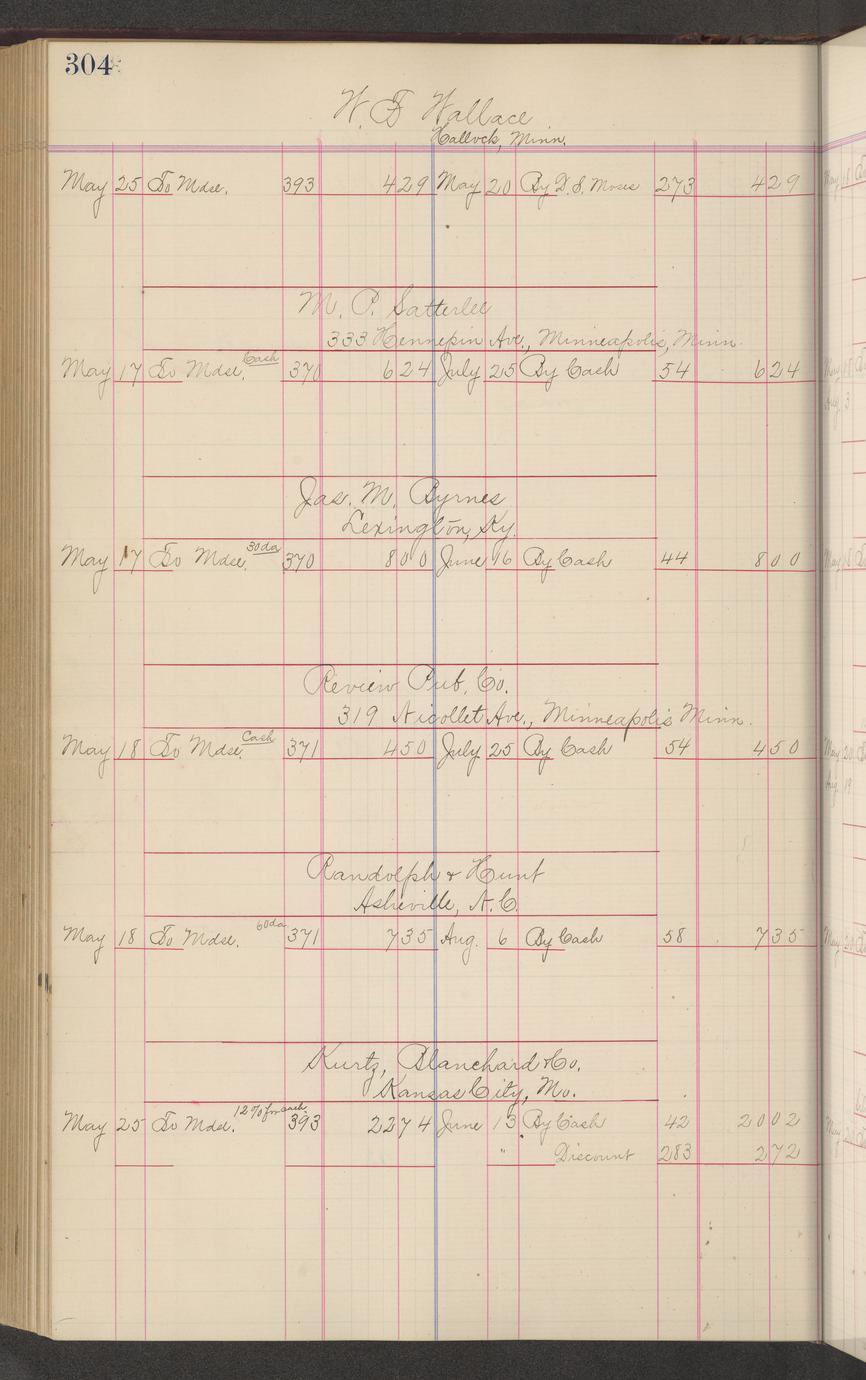 304
W. F. Wallace
Hallock, Minn.
May 25 To Mdse. 393 429 May 20 By D. S. Moses 273 429
M. P. Satterlee
333 Hennepin Ave., Minneapolis, Minn.
May 17 To Mdse. Cash 370 624 July 25 By Cash 54 624
Jas. M. Byrnes
Lexington, Ky.
May 17 To Mdse. 30 da 370 800 June 16 By Cash 44 800
Review Pub. Co.
319 Nicollet Ave., Minneapolis Minn.
May 18 To Mdse. Cash 371 450 July 25 By Cash 54 450
Randolph & Hunt
Asheville, N.C.
May 18 To Mdse. 60 da 371 735 Aug. 6 By Cash 58 735
Kurtz, Blanchard & Co.
Kansas City, Mo.
May 25 To Mdse. 12% for cash 393 2274 June 13 By Cash 42 2002
" Discount 283 272